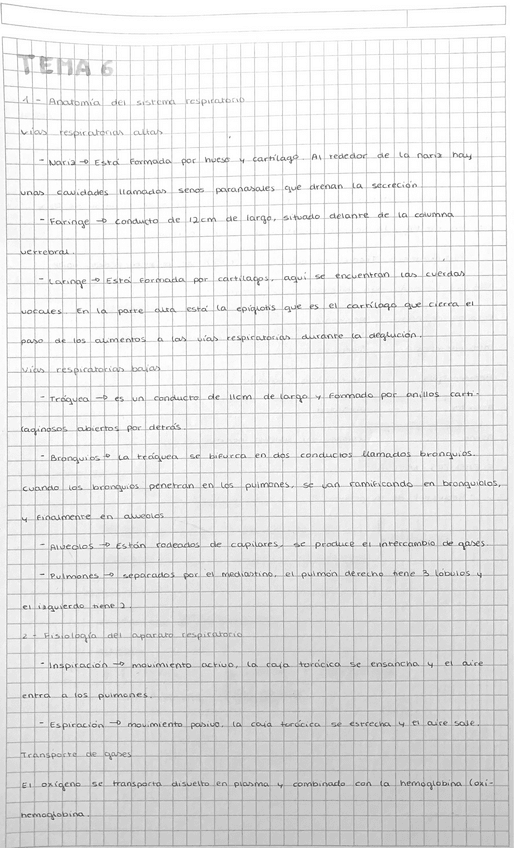 TEMA 6
1 - Anatomía del sistema respiratorio
Vías respiratorias altas
- Nariz → Está formada por hueso y cartílago. Al rededor de la nariz hay
unas cavidades llamadas senos paranasales que drenan la secreción
- Faringe → conducto de 12cm de largo, situado delante de la columna
vertebral.
- Laringe → Está formada por cartílagos, aquí se encuentran las cuerdas
vocales. En la parte alta está la epiglotis que es el cartílago que cierra el
paso de los alimentos a las vías respiratorias durante la deglución.
Vías respiratorias bajas
- Tráquea → es un conducto de 11cm de largo y formado por anillos carti-
laginosos abiertos por detrás.
- Bronquios → La tráquea se bifurca en dos conductos llamados bronquios.
cuando los bronquios penetran en los pulmones, se van ramificando en bronquiolos,
y finalmente en alveolos
- Alveolos → Están rodeados de capilares, se produce el intercambio de gases
- Pulmones → separados por el mediastino, el pulmón derecho tiene 3 lóbulos y
el izquierdo tiene 2.
2 - Fisiología del aparato respiratorio
- Inspiración → movimiento activo, la caja torácica se ensancha y el aire
entra a los pulmones.
- Espiración → movimiento pasivo, la caja torácica se estrecha y el aire sale.
Transporte de gases
El oxígeno se transporta disuelto en plasma y combinado con la hemoglobina (oxi-
hemoglobina.